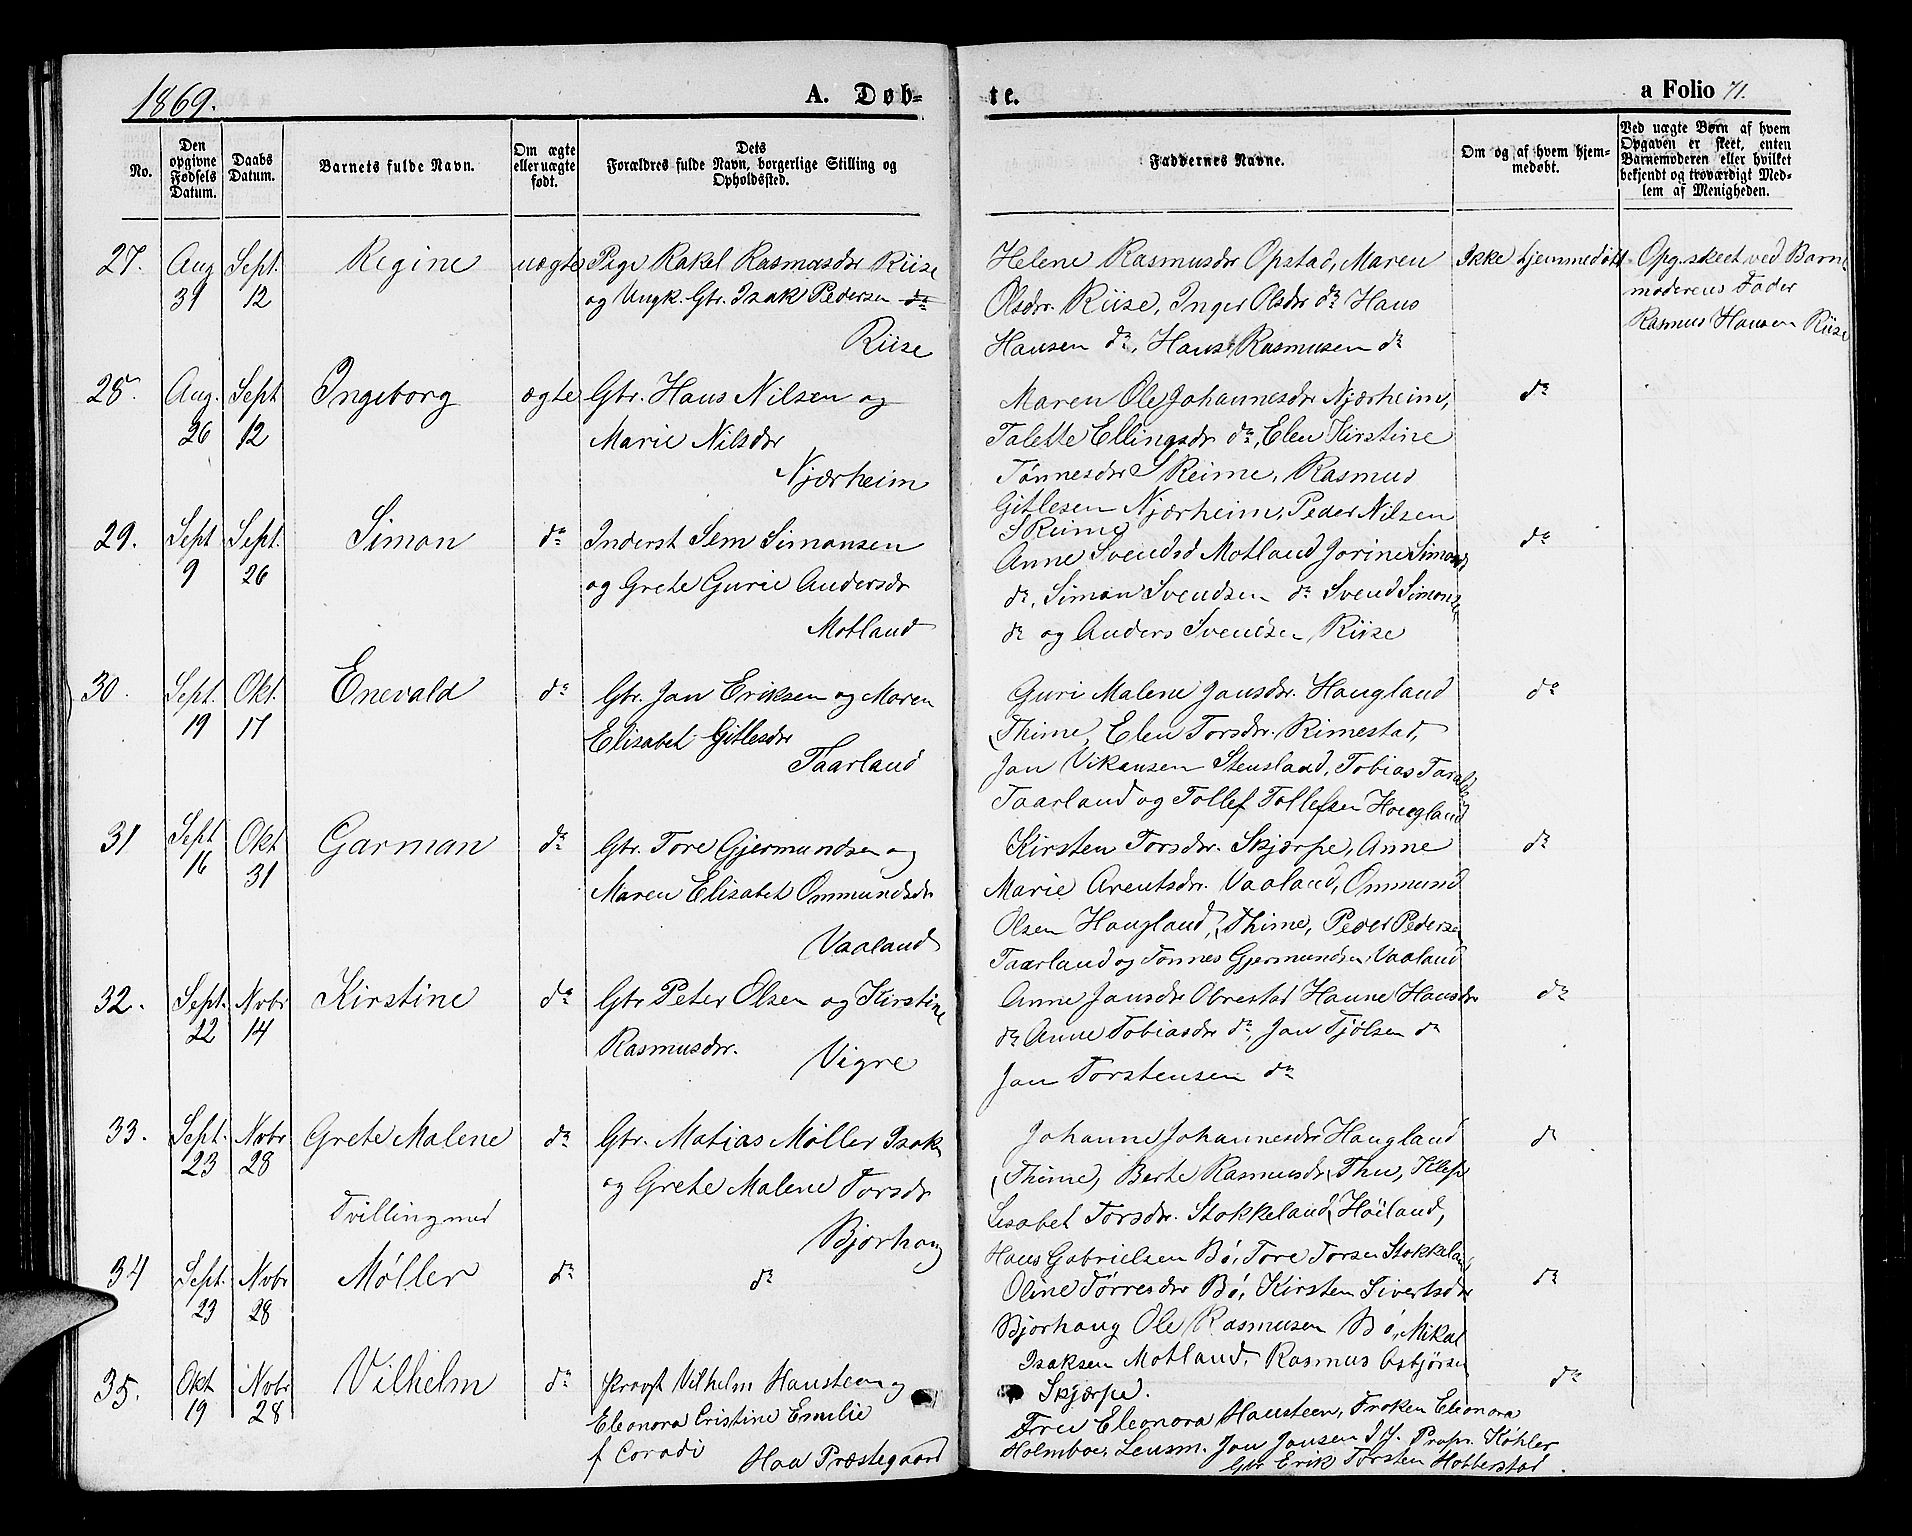 1869.
A. Døb-
te.
a Folio 71.
No.
Den opgivne Fødsels Datum.
Daabs Datum.
Barnets fulde Navn.
Om ægte eller uægte født.
Dets Forældres fulde Navn, borgerlige Stilling og Opholdssted.
Faddernes Navne.
Om og af hvem hjemmedøbt.
Ved uægte Børn af hvem Opgaven er skeet, enten Barnemoderen eller hvilket bekjendt og troværdigt Medlem af Menigheden.
27. Aug 31 Sept. 12 Regine uægte
Pige Rakel Rasmusdr Riise
og Ungk. Gtr. Isak Pedersen
Riise
Helene Rasmusdr Opstad, Maren
Olsdr. Riise, Inger Olsdr do Hans
Hansen do, Hans Rasmusen do
Ikke hjemmedøbt
Opg. skeet ved Barne
moderens Fader
Rasmus Hansen Riise
28. Aug. 26 Sept 12 Ingeborg ægte
Gtr. Hans Nilsen og
Marie Nilsdr
Njærheim
Maren Ole Johannesdr Njærheim,
Talette Ellingsdr do, Elen Kirstine
Tønnesdr S Reime, Rasmus
Gitlesen Njærheim, Peder Nilsen
S Reime
do
29. Sept 9 Sept. 26 Simon do
Inderst Sem Simonsen
og Grete Gurie Andersdr
Motland
Anne Svendsd Motland Jorine Simonsd
do, Simon Svendsen do Svend Simonsen
do og Anders Svendsen Riise
do
30. Sept. 19 Okt. 17 Enevald do
Gtr. Jan Eriksen og Maren
Elisabet Gitlesdr
Taarland
Guri Malene Jansdr. Haugland
Thime, Elen Torsdr. Rimestad,
Jan Vikansen Stensland, Tobias
Taarland og Tollef Tollefsen Haugland
do
31 Sept 16 Okt 31 Garman do
Gtr. Tore Gjermundsen og
Maren Elisabet Ommundsdr
Vaaland
Kirsten Torsdr. Skjærpe, Anne
Marie Arentsdr. Vaaland, Ommund
Olsen Haugland, Thime, Peder Pedersen
Taarland og Tønnes Gjermundsen Vaaland
do
32. Sept. 22 Novbr 14 Kirstine do
Gtr Peter Olsen og Kirstine
Rasmusdr.
Vigre
Anne Jansdr Obrestad Hanne Hansdr
do Anne Tobiasdr do, Jan Tjølsen do
Jan Torstensen do
do
33. Sept. 23 Novbr 28 Grete Malene do
Tvilling med
Gtr. Matias Møller Isak
og Grete Malene Torsdr
Bjorhaug
Johanne Johannesdr Haugland
Thime, Berte Rasmusdr Thu, Klep
Lisabet Torsdr. Stokkeland, Høiland,
Hans Gabrielsen Bø, Tore Torsen Stokkeland
do
34 Sept. 23 Novbr 28 Møller do
do
Oline Tørresdr Bø, Kirsten Sivertsdr
Bjorhaug Ole Rasmusen Bø, Mikal
Isaksen Motland, Rasmus Asbjørsen
Skjærpe.
do
35. Okt 19 Novbr 28 Vilhelm do
Provst Vilhelm Hansteen og
Eleonora Cristine Emilie
f Coradi
Haa Præstegaard
Frue Eleonora Hansteen, Frøken Eleonora
Holmboe, Lensm. Jan Jansen Propr. Køhler
Gtr Erik Torsten Hobberstad.
do